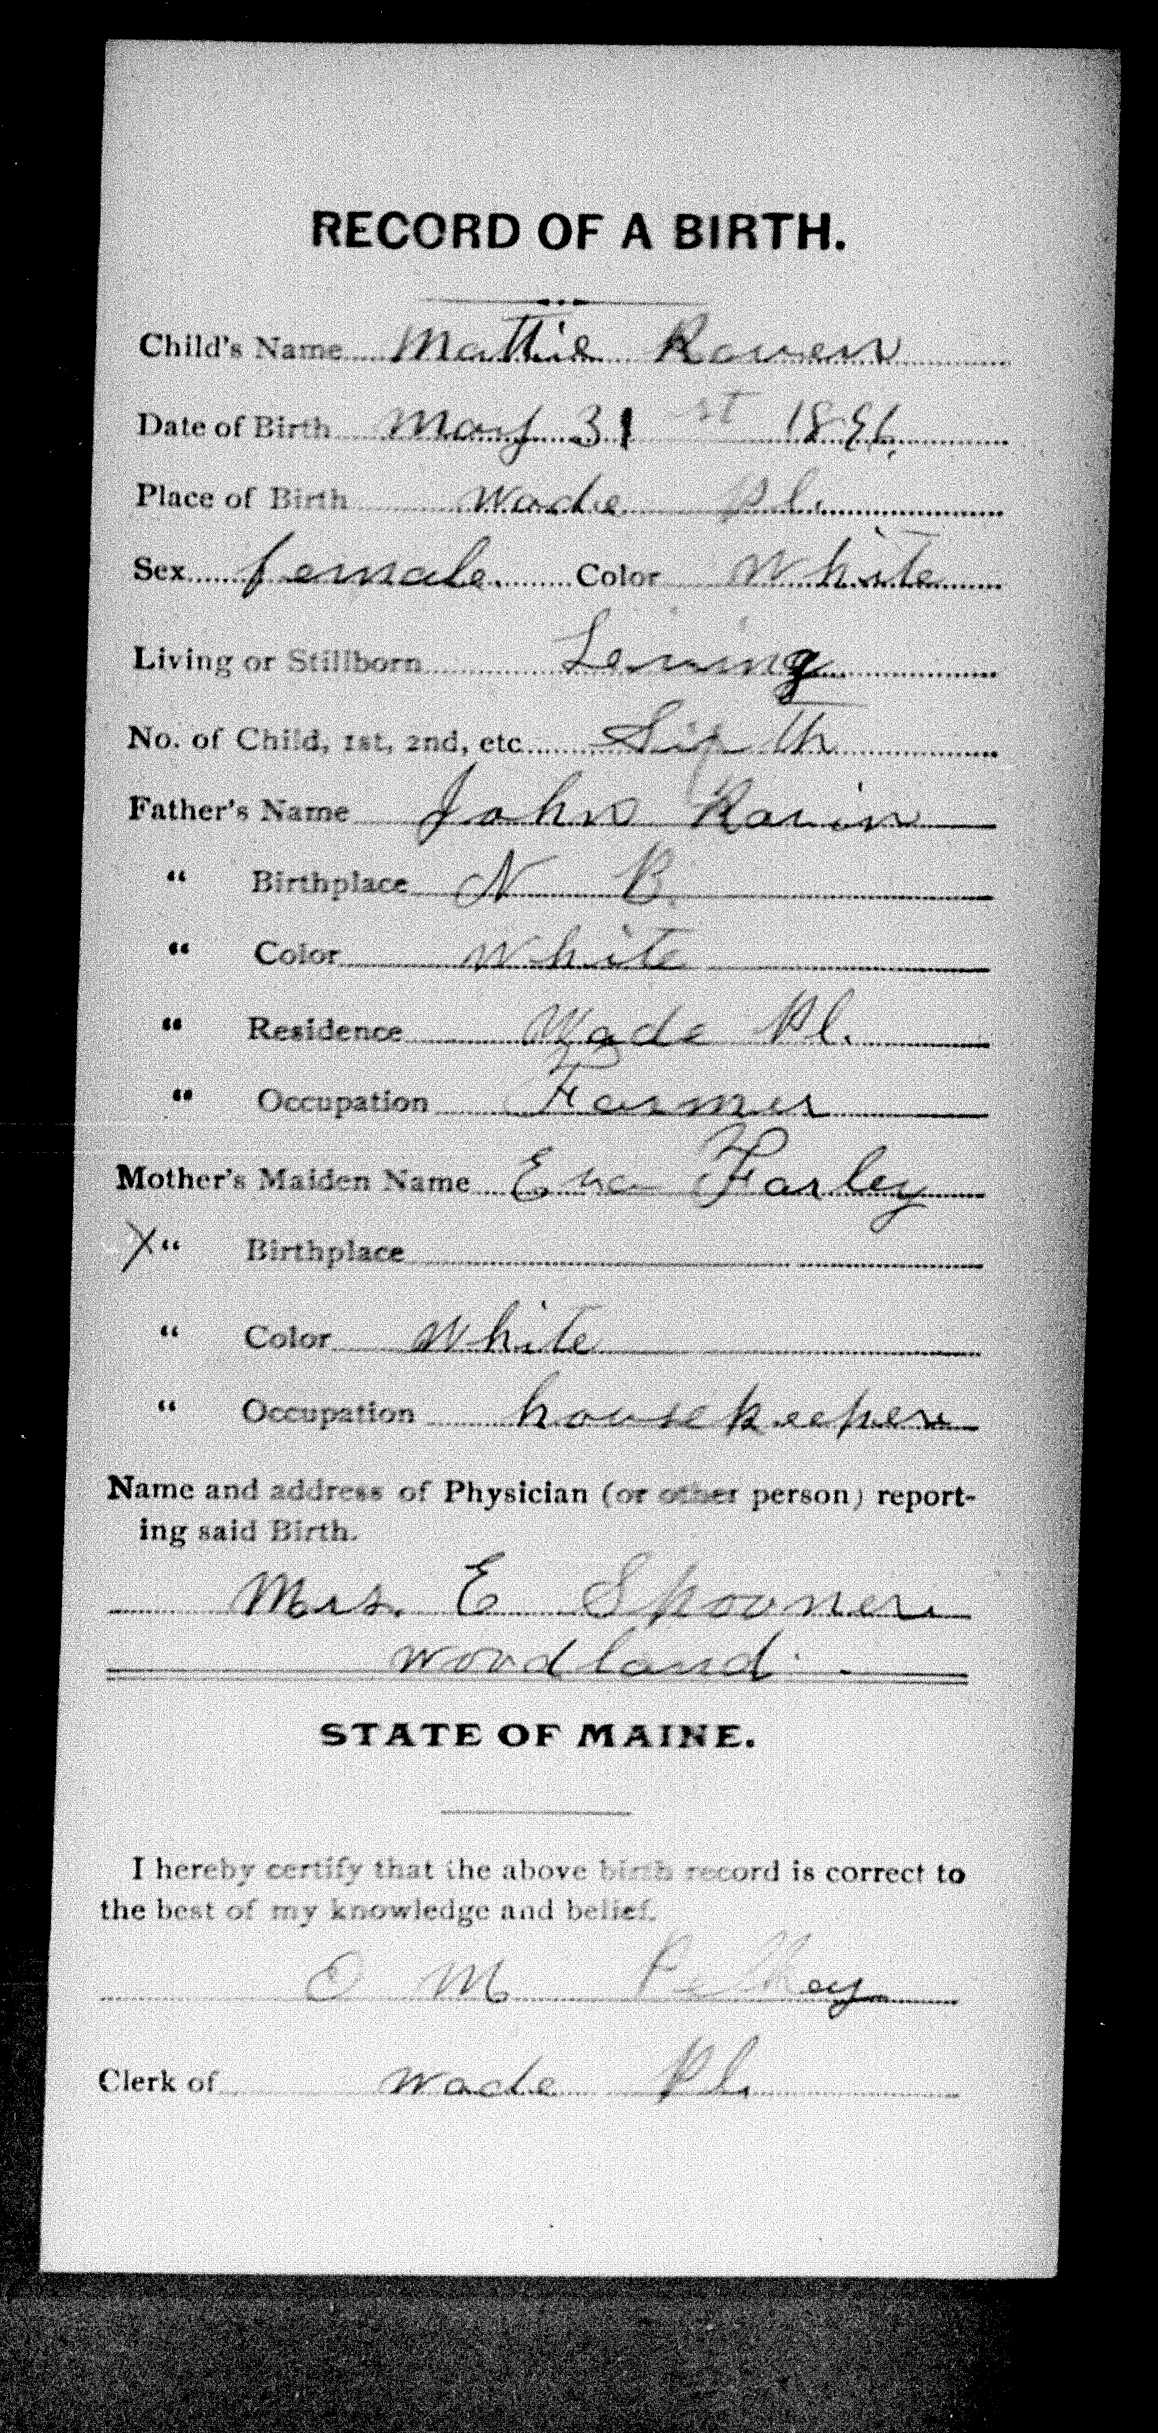 RECORD OF A BIRTH.
Child's Name Mattie Rowen
Date of Birth May 31st 1896.
Place of Birth Wade Pl.
Sex female. Color White
Living or Stillborn Leiving
No. of Child, 1st, 2nd, etc. Sixth
Father's Name John Ravin
" Birthplace N B.
" Color White
" Residence Wade Pl.
" Occupation Farmer
Mother's Maiden Name Farley
X " Birthplace
" Color White
" Occupation housekeeper
Name and address of Physician (or other person) report-
ing said Birth.
Mrs. E Spooner
Woodland.
STATE OF MAINE.
I hereby certify that the above birth record is correct to
the best of my knowledge and belief.
O M Pelkey
Clerk of Wade Pl.